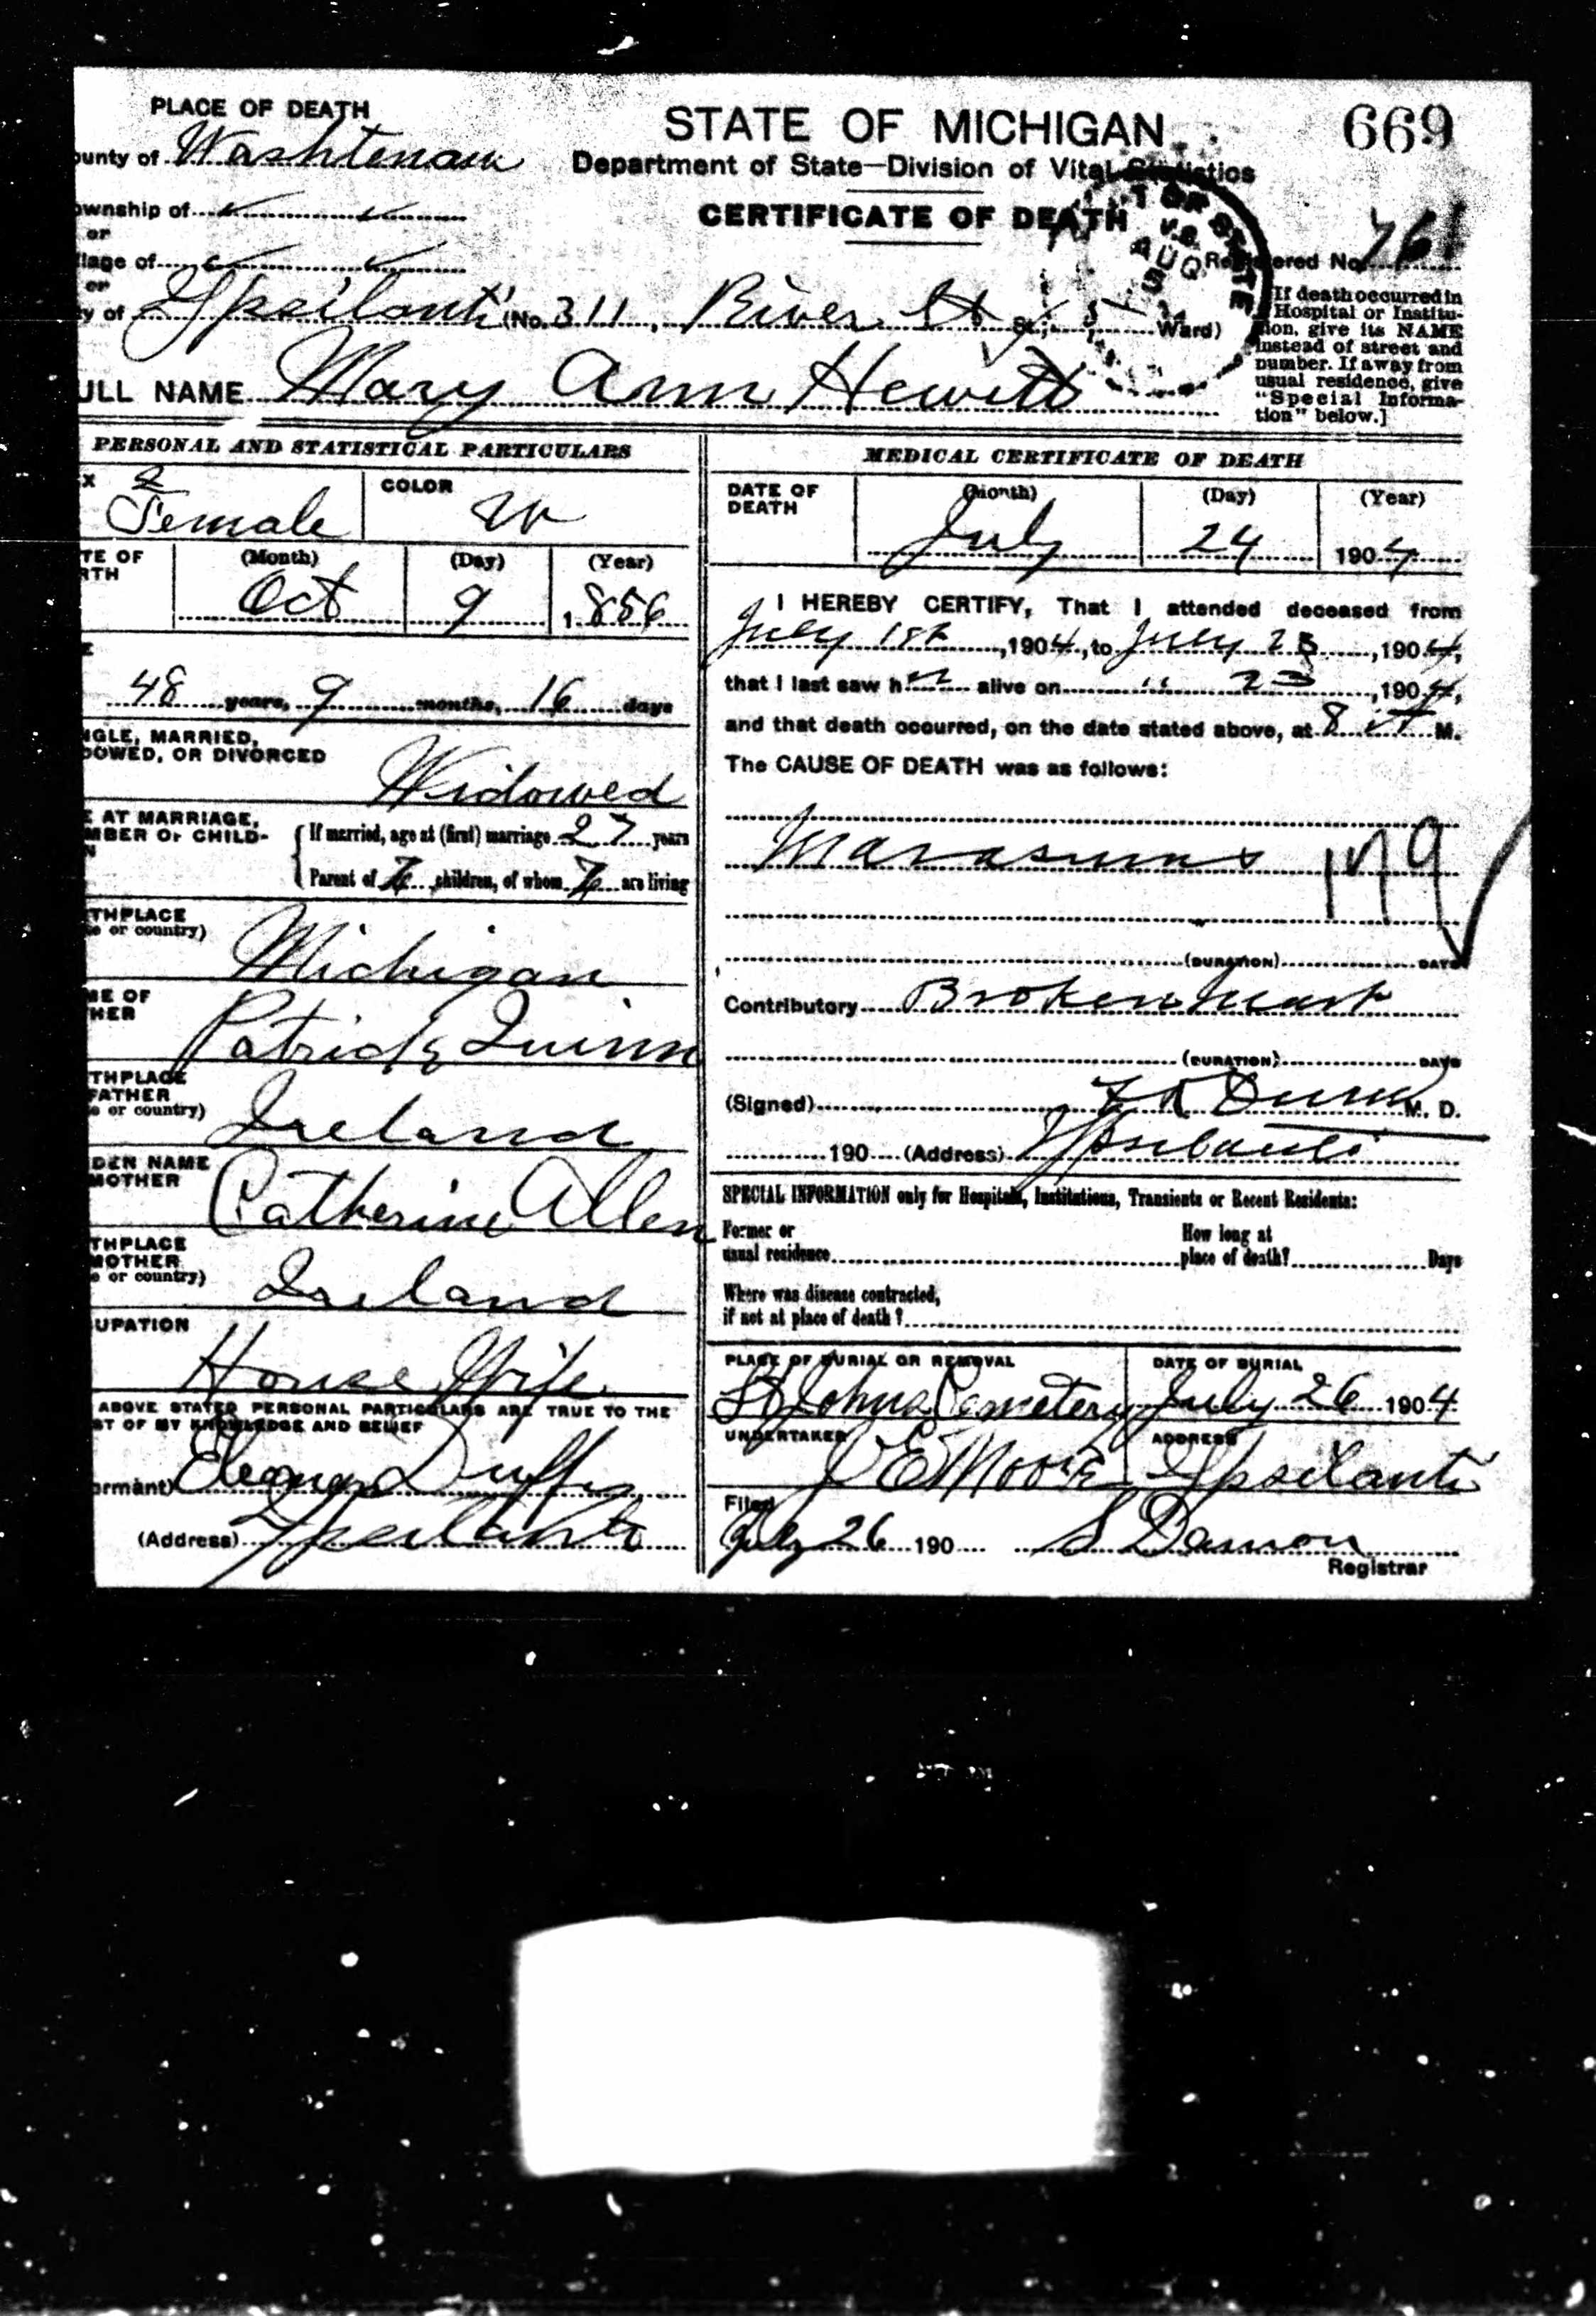 PLACE OF DEATH
STATE OF MICHIGAN
669
ounty of Washtenaw
Department of State—Division of Vital Statistics
ownship of
CERTIFICATE OF DEATH
or
llage of
Registered No. 761
or
y of Ypsilanti (No. 311, River St St.; 5 Ward)
[If death occurred in
Hospital or Institu-
tion, give its NAME
instead of street and
number. If away from
usual residence, give
"Special Informa-
tion" below.]
ULL NAME Mary Ann Hewitt
AUG
5
PERSONAL AND STATISTICAL PARTICULARS
X 2
Female
COLOR
W
TE OF
RTH
(Month)
(Day)
(Year)
Oct 9 1856
48 years, 9 months, 16 days
NGLE, MARRIED,
DOWED, OR DIVORCED
Widowed
E AT MARRIAGE,
MBER OF CHILD-
N
If married, age at (first) marriage 27 years
Parent of 7 children, of whom 7 are living
THPLACE
e or country)
Michigan
ME OF
HER
Patrick Quinn
THPLACE
FATHER
e or country)
Ireland
DEN NAME
MOTHER
Catherine Allen
THPLACE
MOTHER
e or country)
Ireland
UPATION
House Wife
ABOVE STATED PERSONAL PARTICULARS ARE TRUE TO THE
ST OF MY KNOWLEDGE AND BELIEF
ormant) Eleanor Duffy
(Address) Ypsilanti
MEDICAL CERTIFICATE OF DEATH
DATE OF
DEATH
(Month)
(Day)
(Year)
July 24 1904
I HEREBY CERTIFY, That I attended deceased from
July 1st, 1904, to July 23, 1904,
that I last saw her alive on " 23, 1904,
and that death occurred, on the date stated above, at 8 A M.
The CAUSE OF DEATH was as follows:
Marasmus
179
(DURATION) DAYS
Contributory Broken heart
(DURATION) DAYS
(Signed) M. D.
190 (Address) Ypsilanti
SPECIAL INFORMATION only for Hospitals, Institutions, Transients or Recent Residents:
Former or
usual residence
How long at
place of death? Days
Where was disease contracted,
if not at place of death?
PLACE OF BURIAL OR REMOVAL
DATE OF BURIAL
St Johns Cemetery July 26 1904
UNDERTAKER
ADDRESS
E Moore Ypsilanti
Filed
July 26 190 S Damon
Registrar